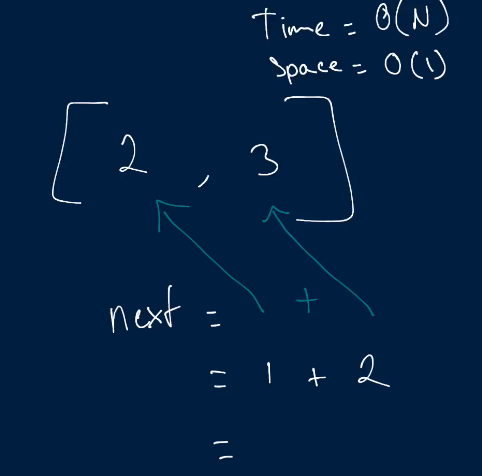 Time = O(N)
Space = O(1)
[2, 3]
next = +
= 1 + 2
=